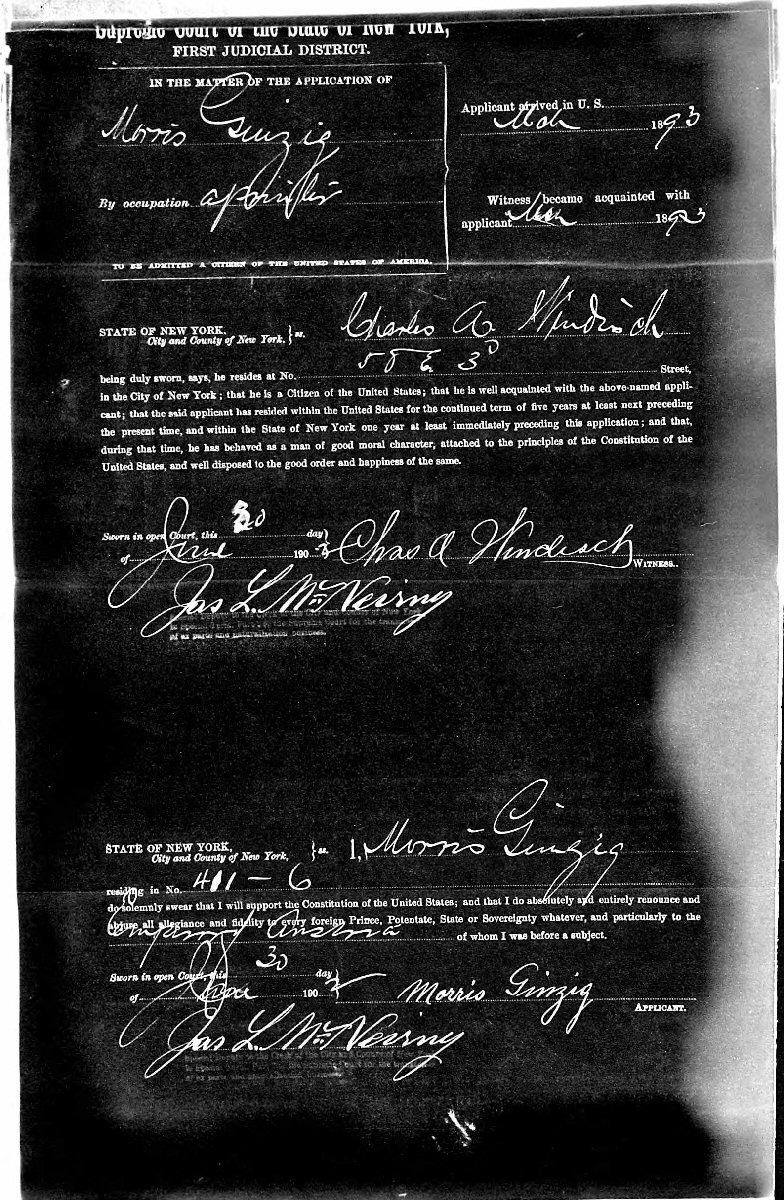 Supreme Court of the State of New York,
FIRST JUDICIAL DISTRICT.
IN THE MATTER OF THE APPLICATION OF
Morris Ginzig
By occupation a printer
TO BE ADMITTED A CITIZEN OF THE UNITED STATES OF AMERICA.
Applicant arrived in U. S.
Mch 1893
Witness became acquainted with
applicant Mch 1893
STATE OF NEW YORK,
City and County of New York, } ss.
Charles A. Windisch
58 E 3d
being duly sworn, says, he resides at No. Street,
in the City of New York; that he is a Citizen of the United States; that he is well acquainted with the above-named appli-
cant; that the said applicant has resided within the United States for the continued term of five years at least next preceding
the present time, and within the State of New York one year at least immediately preceding this application; and that,
during that time, he has behaved as a man of good moral character, attached to the principles of the Constitution of the
United States, and well disposed to the good order and happiness of the same.
Sworn in open Court, this 30 day
of June 190 } Chas A Windisch
WITNESS.
Jas L. McNeirny
STATE OF NEW YORK,
City and County of New York, } ss. I, Morris Ginzig
residing in No. 411 - 6
do solemnly swear that I will support the Constitution of the United States; and that I do absolutely and entirely renounce and
abjure all allegiance and fidelity to every foreign Prince, Potentate, State or Sovereignty whatever, and particularly to the
Emperor of Austria of whom I was before a subject.
Sworn in open Court, this 30 day
of June 1902 } Morris Ginzig
APPLICANT.
Jas L. McNeirny